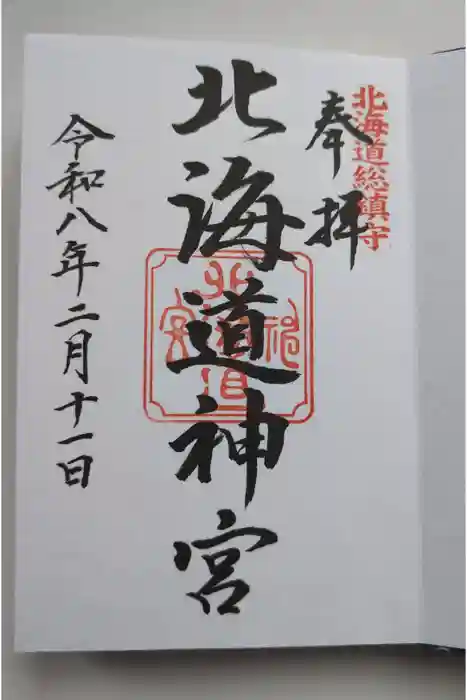 北海道総鎮守
奉拝
北海道神宮
令和八年二月十一日